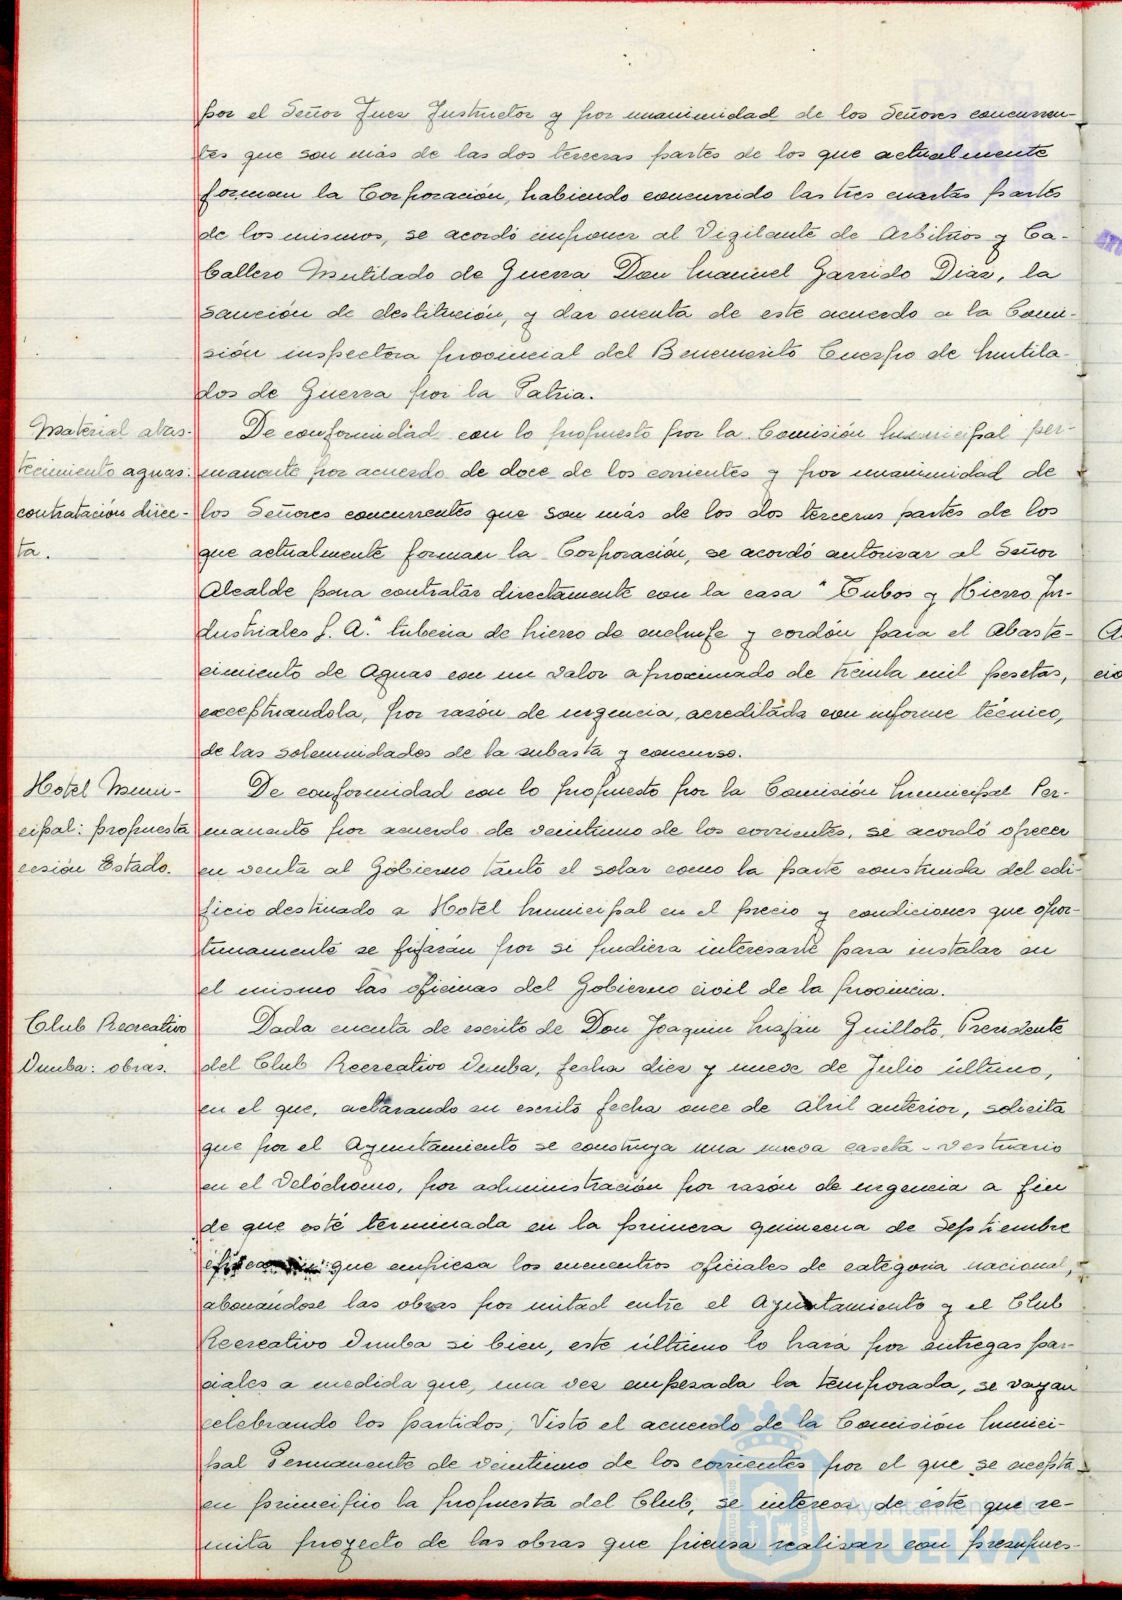 por el Señor Juez Instructor y por unanimidad de los Señores concurren-
tes que son más de las dos terceras partes de los que actualmente
forman la Corporación, habiendo concurrido las tres cuartas partes
de los mismos, se acordó imponer al Vigilante de Arbitrios y Ca-
ballero Mutilado de Guerra Don Manuel Garrido Diaz, la
sanción de destitución, y dar cuenta de este acuerdo a la Comi-
sión inspectora provincial del Benemerito Cuerpo de Mutila-
dos de Guerra por la Patria.
Material abas-
tecimiento aguas:
contratación direc-
ta.
De conformidad con lo propuesto por la Comisión Municipal per-
manente por acuerdo de doce de los corrientes y por unanimidad de
los Señores concurrentes que son más de los dos terceras partes de los
que actualmente forman la Corporación, se acordó autorizar al Señor
Alcalde para contratar directamente con la casa "Tubos y Hierro In-
dustriales S. A." tuberia de hierro de enchufe y cordón para el Abaste-
cimiento de Aguas con un valor aproximado de treinta mil pesetas,
exceptuandola, por razón de urgencia, acreditada con informe técnico,
de las solemnidades de la subasta y concurso.
Hotel Muni-
cipal: propuesta
cesión Estado.
De conformidad con lo propuesto por la Comisión Municipal Per-
manente por acuerdo de veintiuno de los corrientes, se acordó ofrecer
en venta al Gobierno tanto el solar como la parte construida del edi-
ficio destinado a Hotel Municipal en el precio y condiciones que opor-
tunamente se fijarán por si pudiera interesarle para instalar en
el mismo las oficinas del Gobierno civil de la provincia.
Club Recreativo
Onuba: obras.
Dada cuenta de escrito de Don Joaquin Guilloto, Presidente
del Club Recreativo Onuba, fecha diez y nueve de Julio último,
en el que, aclarando su escrito fecha once de Abril anterior, solicita
que por el Ayuntamiento se construya una nueva caseta-vestuario
en el Velódromo, por administración por razón de urgencia a fin
de que esté terminada en la primera quincena de Septiembre
que empieza los encuentros oficiales de categoria nacional,
abonándose las obras por mitad entre el Ayuntamiento y el Club
Recreativo Onuba si bien, este último lo hará por entregas par-
ciales a medida que, una vez empezada la temporada, se vayan
celebrando los partidos; Visto el acuerdo de la Comisión Munici-
pal Permanente de veintiuno de los corrientes por el que se acepta
en principio la propuesta del Club, se interesa de éste que re-
mita proyecto de las obras que piensa realizar con presupues-
Ayuntamiento de
HUELVA